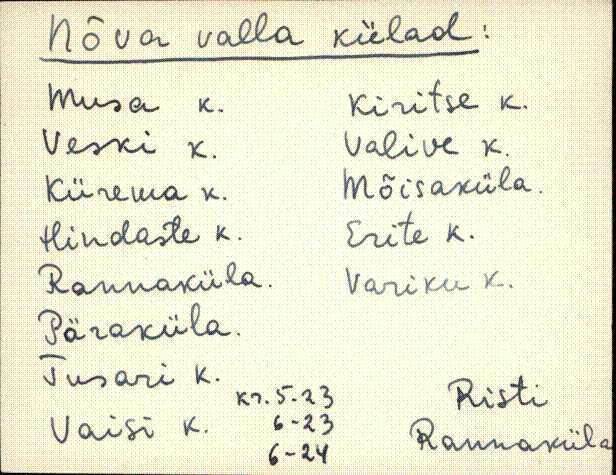 Nõva valla külad:
Musa k.
Veski k.
Kürema k.
Hindaste k.
Rannaküla.
Päraküla.
Tusari k.
Vaisi k.
Kiritse k.
Valive k.
Mõisaküla.
Erite k.
Variku k.
kr. 5-23
6-23
6-24
Risti
Rannaküla